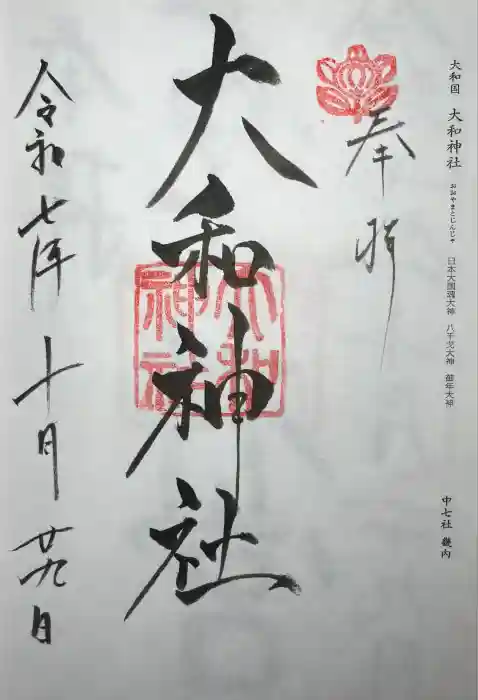 大和国 大和神社 おおやまとじんじゃ 日本大国魂大神 八千戈大神 御年大神
中七社 畿内
奉拝
大和神社
大和神社
令和七年十月廿九日